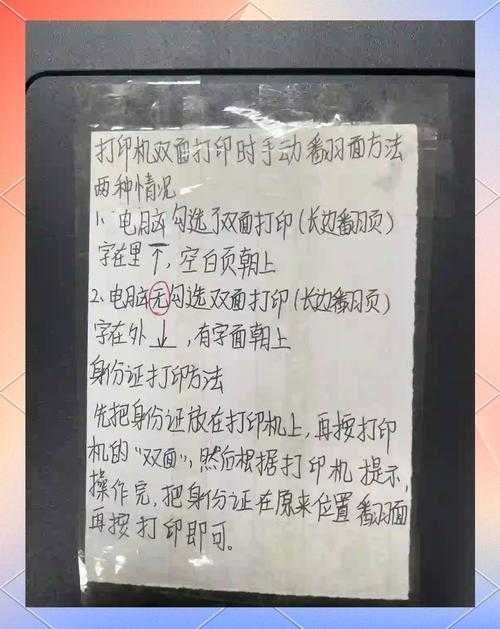 打印机双面打印时手动翻面方法
两种情况
1. 电脑勾选了双面打印(长边翻页)
字在里↑,空白页朝上
2. 电脑无勾选双面打印(长边翻页)
字在外↓,有字面朝上
身份证打印方法
先把身份证放在打印机上,再按打印
机的“双面”,然后根据打印机提示,
操作完,把身份证在原来位置翻面
再按打印即可。